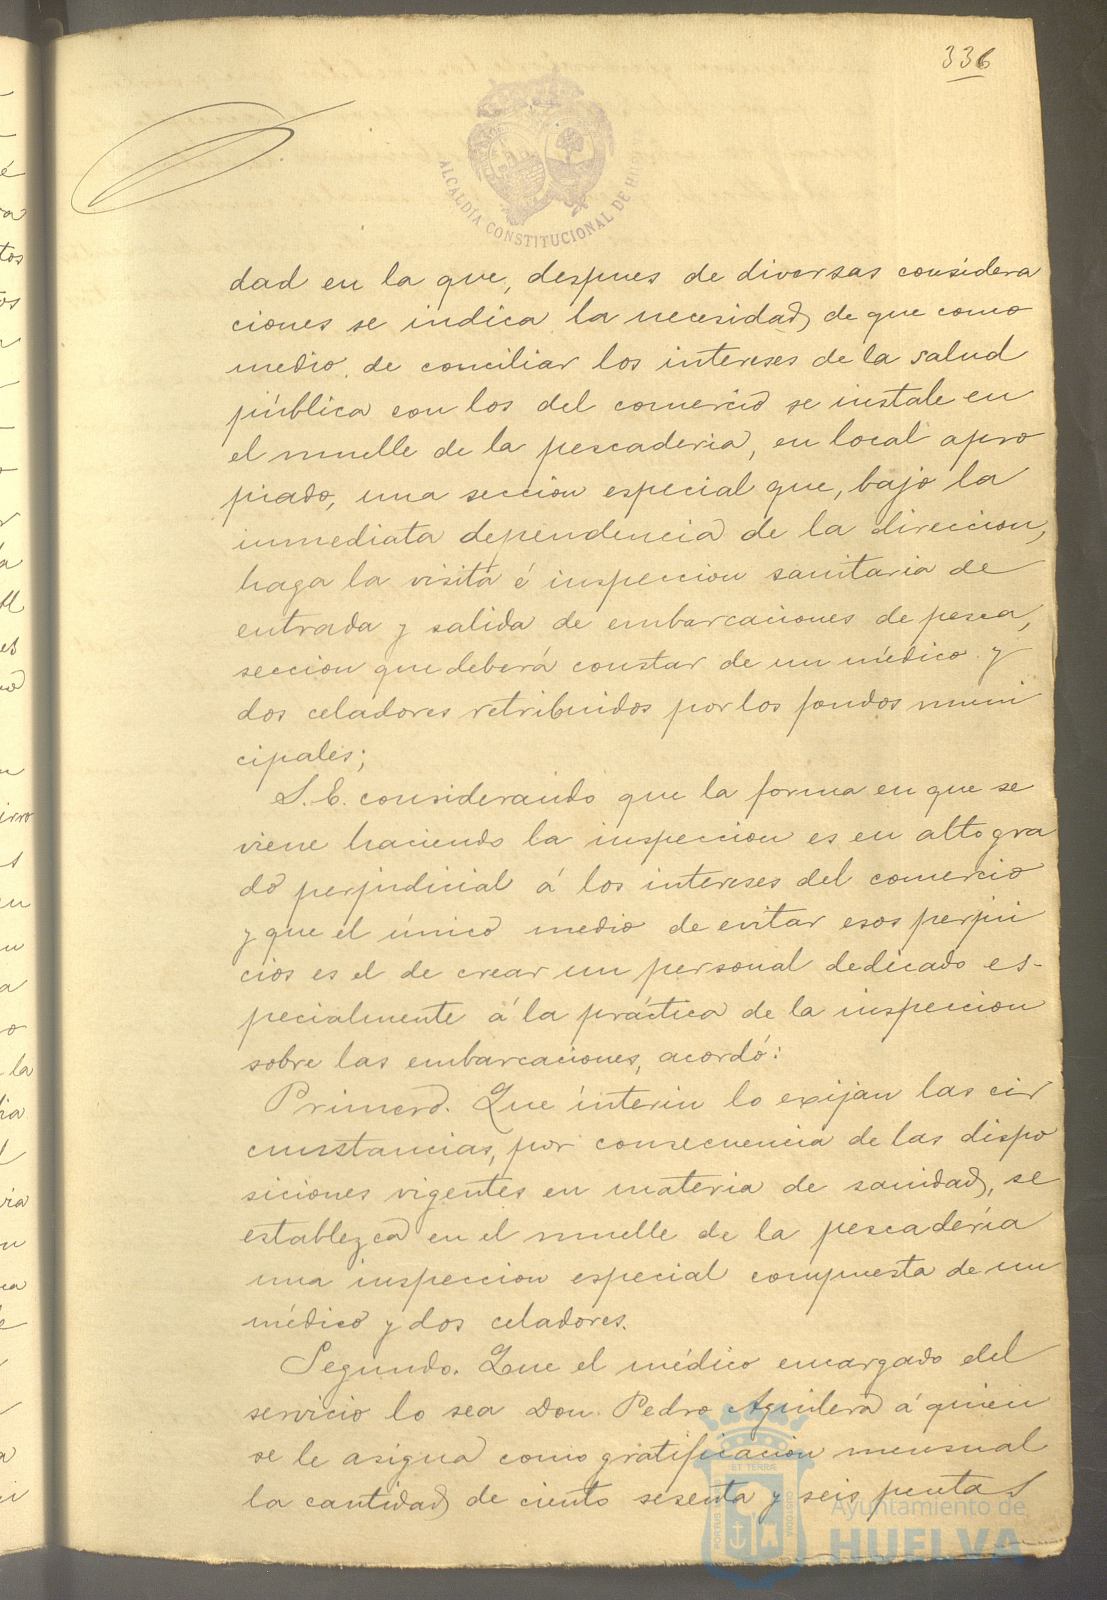 336
ALCALDÍA CONSTITUCIONAL DE HUELVA
dad en la que, despues de diversas considera
ciones se indica la necesidad, de que como
medio de conciliar los intereses de la salud
pública con los del comercio se instale en
el muelle de la pescaderia, en local apro
piado, una seccion especial que, bajo la
inmediata dependencia de la direccion,
haga la visita é inspeccion sanitaria de
entrada y salida de embarcaciones de pesca,
seccion que deberá constar de un médico y
dos celadores retribuidos por los fondos muni
cipales;
S. E. considerando que la forma en que se
viene haciendo la inspeccion es en alto gra
do perjudicial á los intereses del comercio
y que el único medio de evitar esos perjui
cios es el de crear un personal dedicado es-
pecialmente á la práctica de la inspeccion
sobre las embarcaciones, acordó:
Primero. Que ínterin lo exijan las cir
cunstancias, por consecuencia de las dispo
siciones vigentes en materia de sanidad, se
establezca en el muelle de la pescadería
una inspeccion especial compuesta de un
médico y dos celadores.
Segundo. Que el médico encargado del
servicio lo sea Don Pedro Aguilera á quien
se le asigna como gratificacion mensual
la cantidad de ciento sesenta y seis pesetas
Ayuntamiento de
HUELVA